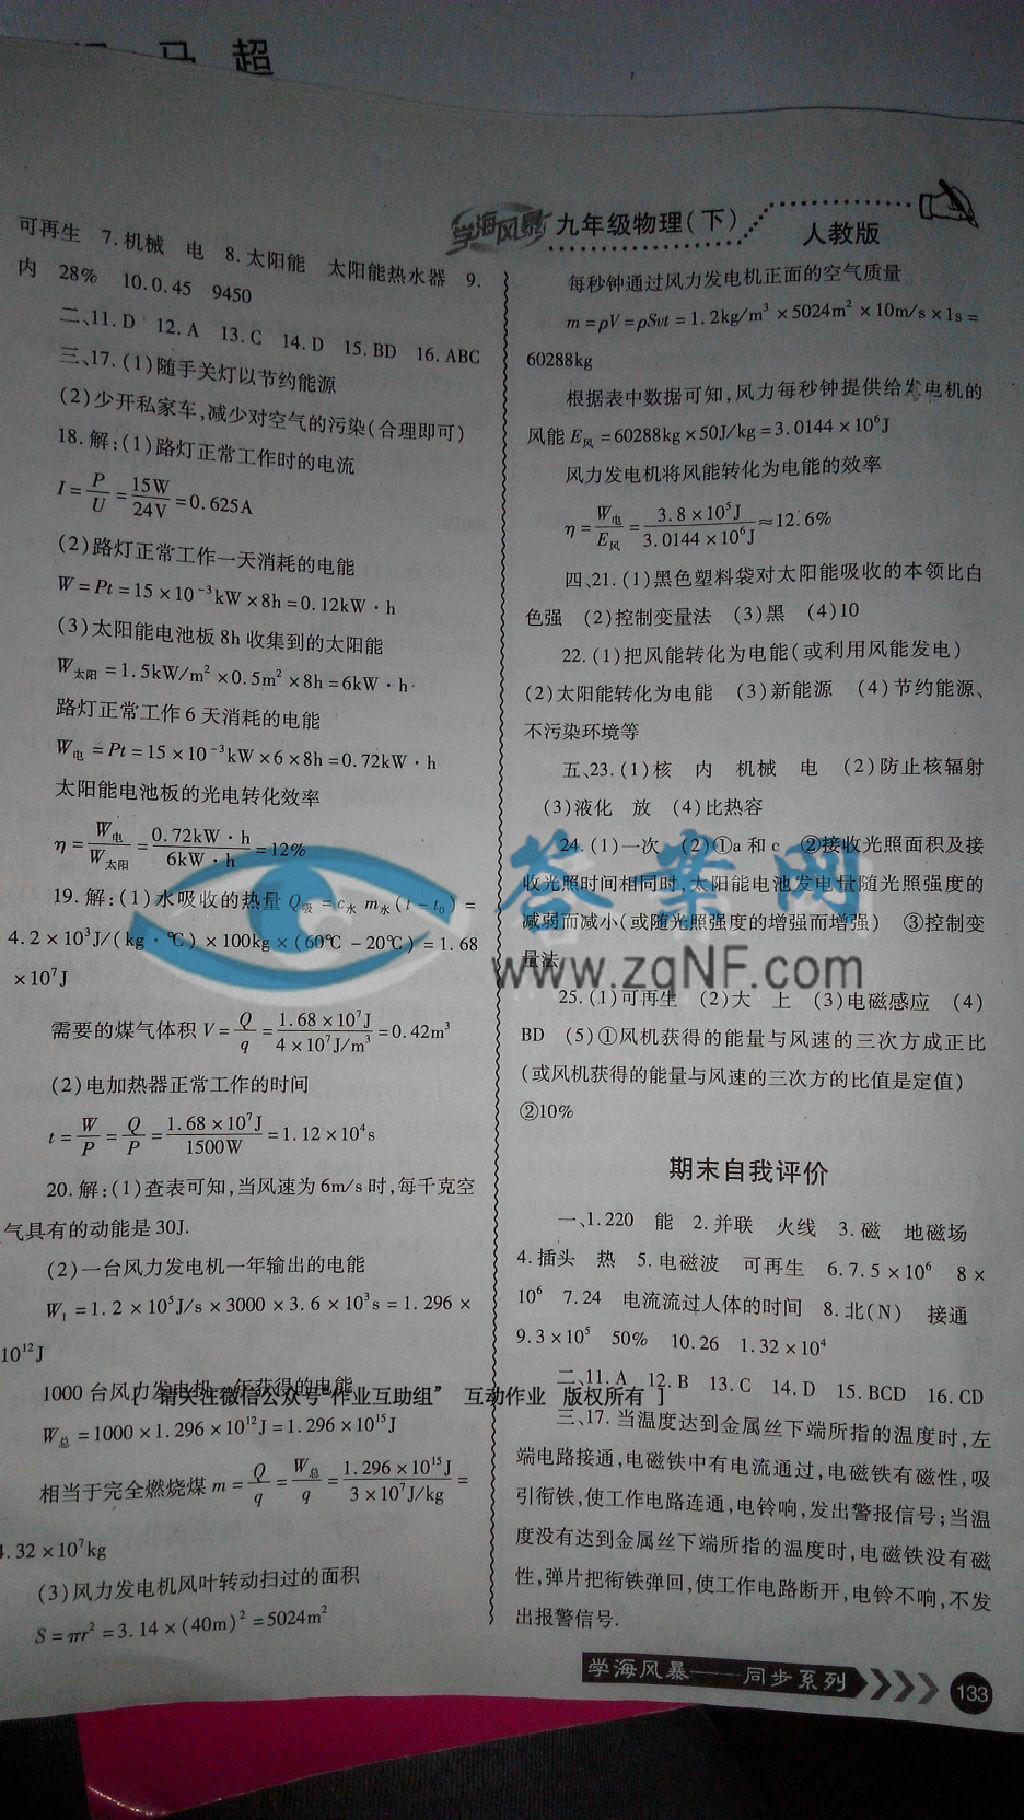 马 超
学海风暴 九年级物理(下)
人教版
可再生 7.机械 电 8.太阳能 太阳能热水器 9.
内 28% 10.0.45 9450
二、11.D 12.A 13.C 14.D 15.BD 16.ABC
三、17.(1)随手关灯以节约能源
(2)少开私家车,减少对空气的污染(合理即可)
18.解:(1)路灯正常工作时的电流
I=P/U=15W/24V=0.625A
(2)路灯正常工作一天消耗的电能
W=Pt=15×10⁻³kW×8h=0.12kW·h
(3)太阳能电池板8h收集到的太阳能
W太阳=1.5kW/m²×0.5m²×8h=6kW·h·
路灯正常工作6天消耗的电能
W电=Pt=15×10⁻³kW×6×8h=0.72kW·h
太阳能电池板的光电转化效率
η=W电/W太阳=0.72kW·h/6kW·h=12%
19.解:(1)水吸收的热量 Q吸=c水m水(t-t₀)=
4.2×10³J/(kg·℃)×100kg×(60℃-20℃)=1.68
×10⁷J
需要的煤气体积V=Q/q=1.68×10⁷J/4×10⁷J/m³=0.42m³
(2)电加热器正常工作的时间
t=W/P=Q/P=1.68×10⁷J/1500W=1.12×10⁴s
20.解:(1)查表可知,当风速为6m/s时,每千克空
气具有的动能是30J.
(2)一台风力发电机一年输出的电能
W₁=1.2×10⁵J/s×3000×3.6×10³s=1.296×
10¹²J
1000台风力发电机一年获得的电能
[ 请关注微信公众号“作业互助组” 互动作业 版权所有 ]
W总=1000×1.296×10¹²J=1.296×10¹⁵J
相当于完全燃烧煤m=Q/q=W总/q=1.296×10¹⁵J/3×10⁷J/kg=
4.32×10⁷kg
(3)风力发电机风叶转动扫过的面积
S=πr²=3.14×(40m)²=5024m²
每秒钟通过风力发电机正面的空气质量
m=ρV=ρSvt=1.2kg/m³×5024m²×10m/s×1s=
60288kg
根据表中数据可知,风力每秒钟提供给发电机的
风能E风=60288kg×50J/kg=3.0144×10⁶J
风力发电机将风能转化为电能的效率
η=W电/E风=3.8×10⁵J/3.0144×10⁶J≈12.6%
四、21.(1)黑色塑料袋对太阳能吸收的本领比白
色强 (2)控制变量法 (3)黑 (4)10
22.(1)把风能转化为电能(或利用风能发电)
(2)太阳能转化为电能 (3)新能源 (4)节约能源、
不污染环境等
五、23.(1)核 内 机械 电 (2)防止核辐射
(3)液化 放 (4)比热容
24.(1)一次 (2)①a和c ②接收光照面积及接
收光照时间相同时,太阳能电池发电量随光照强度的
减弱而减小(或随光照强度的增强而增强) ③控制变
量法
答案网
www.zqNF.com
25.(1)可再生 (2)大 上 (3)电磁感应 (4)
BD (5)①风机获得的能量与风速的三次方成正比
(或风机获得的能量与风速的三次方的比值是定值)
②10%
期末自我评价
一、1.220 能 2.并联 火线 3.磁 地磁场
4.插头 热 5.电磁波 可再生 6.7.5×10⁶ 8×
10⁶ 7.24 电流流过人体的时间 8.北(N) 接通
9.3×10⁵ 50% 10.26 1.32×10⁴
二、11.A 12.B 13.C 14.D 15.BCD 16.CD
三、17.当温度达到金属丝下端所指的温度时,左
端电路接通,电磁铁中有电流通过,电磁铁有磁性,吸
引衔铁,使工作电路连通,电铃响,发出警报信号;当温
度没有达到金属丝下端所指的温度时,电磁铁没有磁
性,弹片把衔铁弹回,使工作电路断开,电铃不响,不发
出报警信号.
学海风暴——同步系列
133